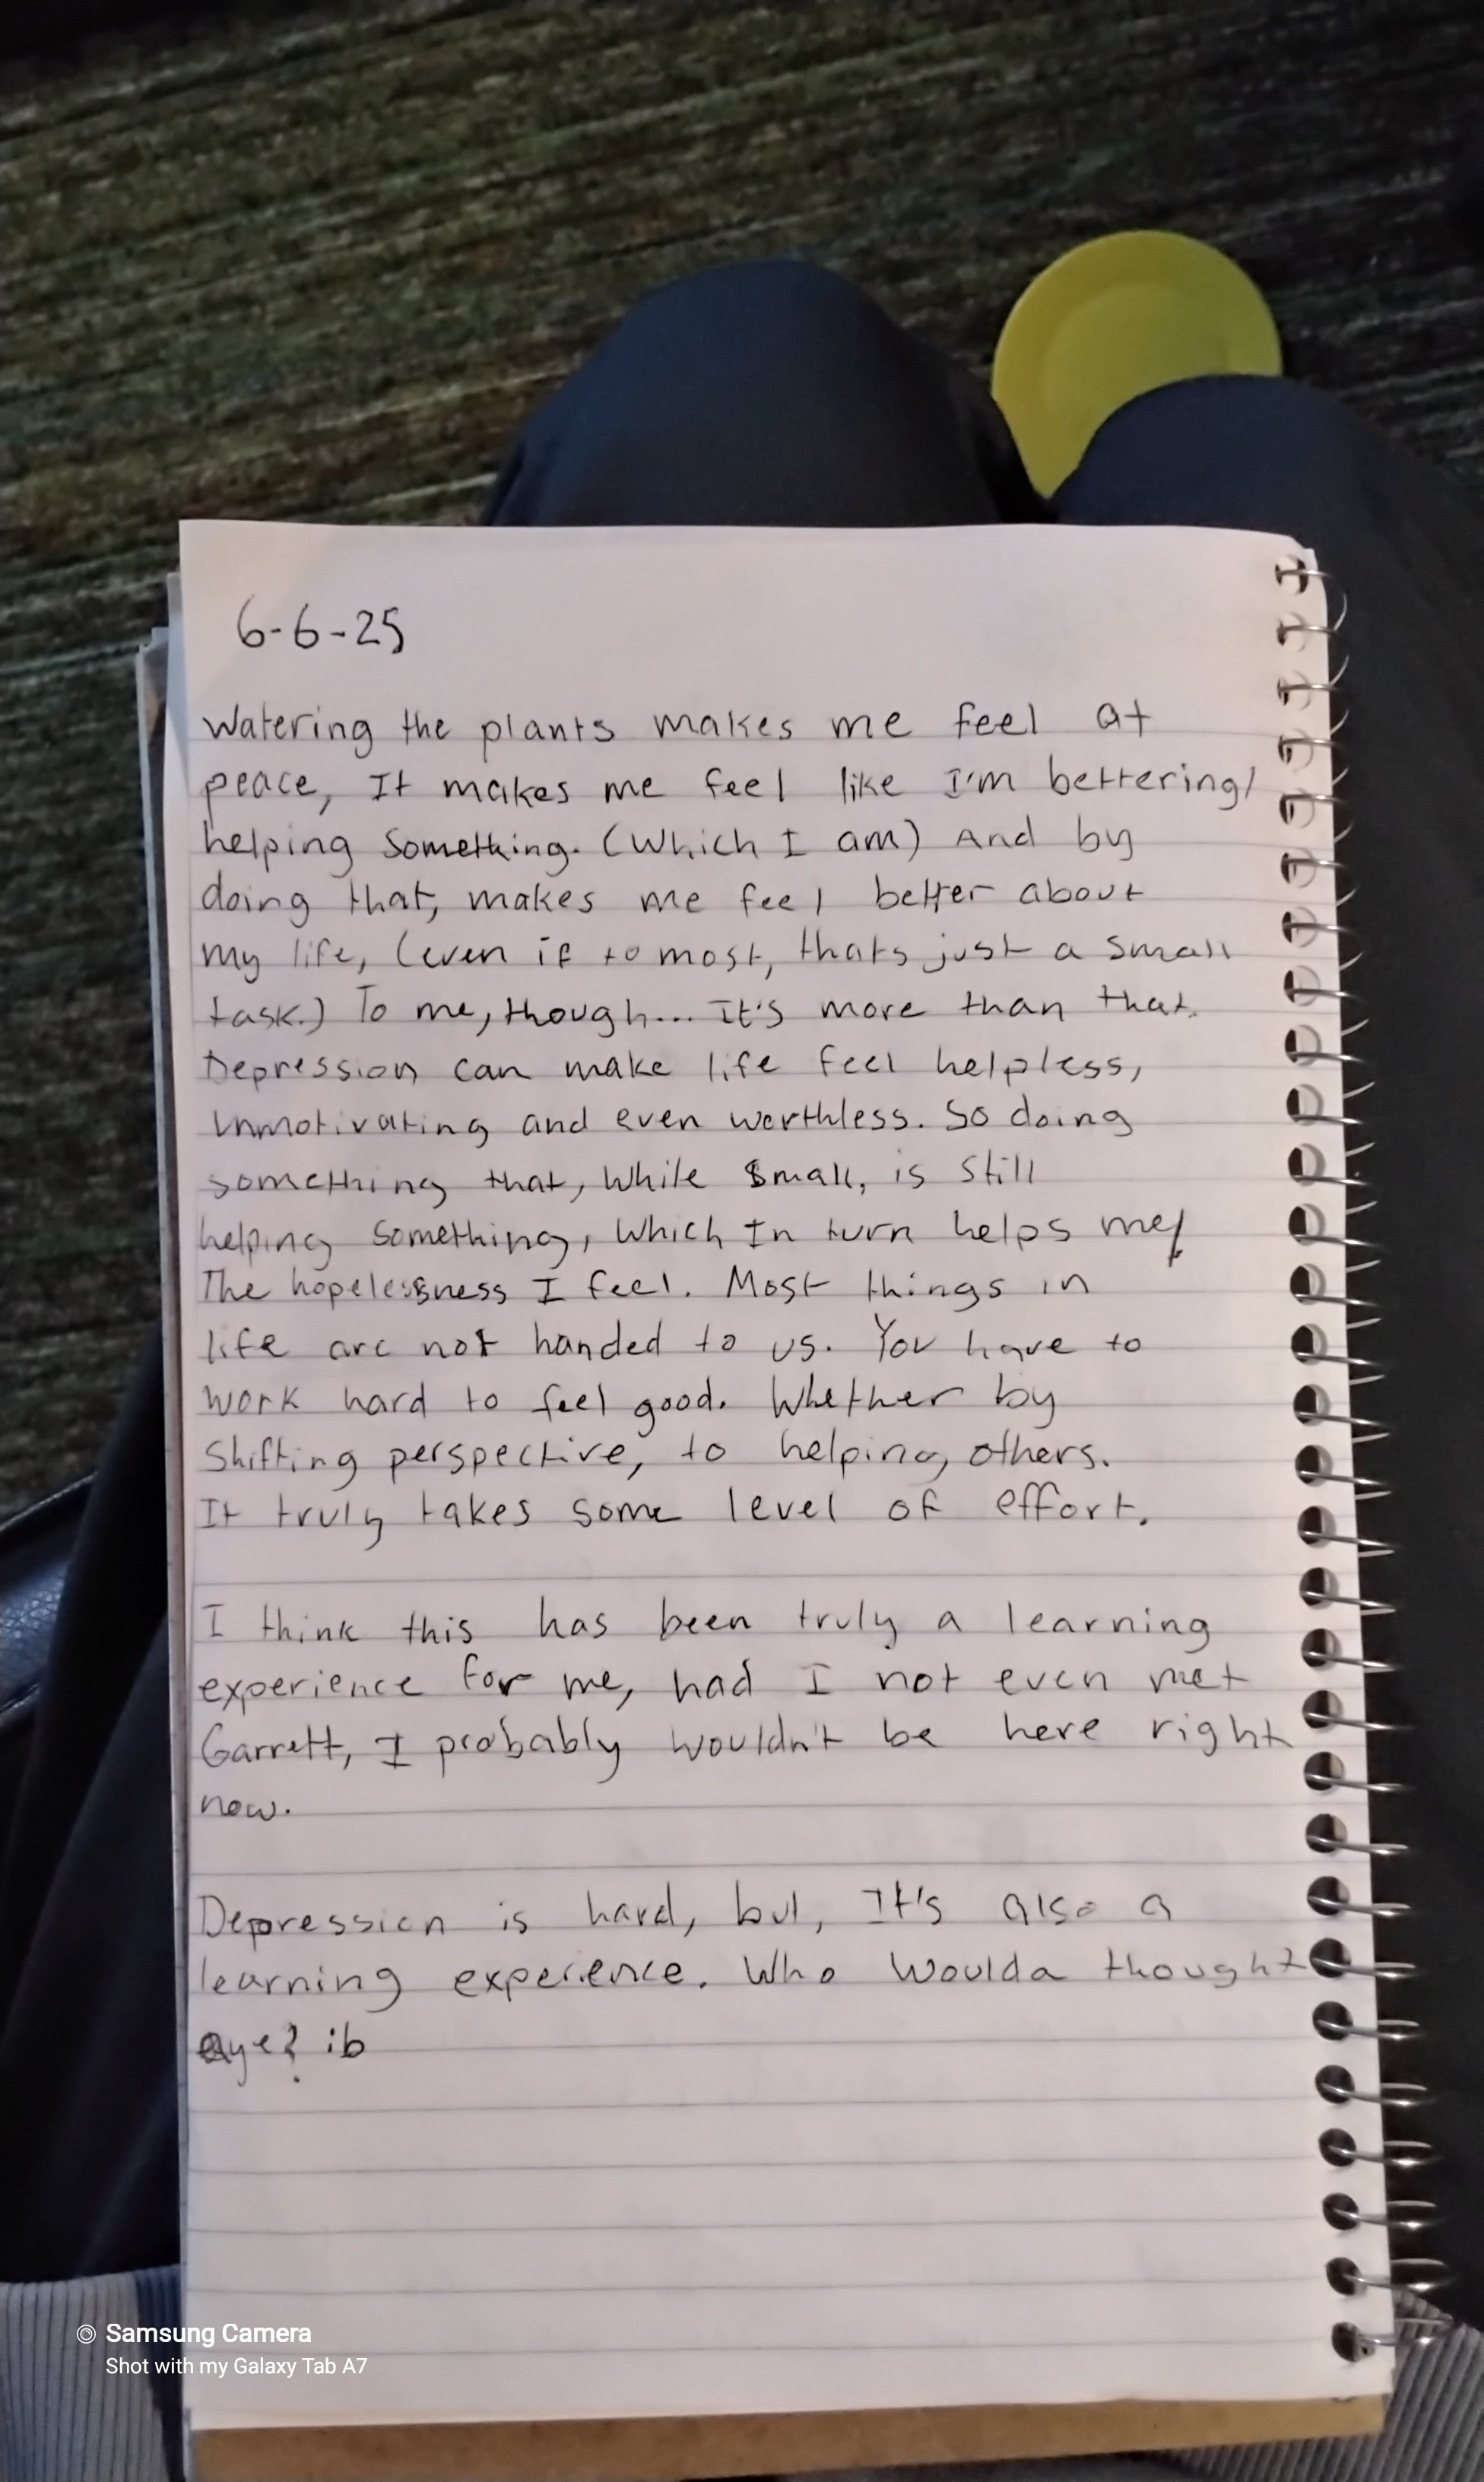 6-6-25
Watering the plants makes me feel at
peace, It makes me feel like I'm bettering/
helping something. (Which I am) And by
doing that, makes me feel better about
my life, (even if to most, thats just a small
task.) To me, though... It's more than that.
Depression can make life feel helpless,
unmotivating and even worthless. So doing
something that, while small, is still
helping something, which In turn helps me/
The hopelessness I feel. Most things in
life are not handed to us. You have to
work hard to feel good. Whether by
shifting perspective, to helping others.
It truly takes some level of effort.
I think this has been truly a learning
experience for me, had I not even met
Garrett, I probably wouldn't be here right
now.
Depression is hard, but, It's also a
learning experience. Who woulda thought
aye? ib
Samsung Camera
Shot with my Galaxy Tab A7